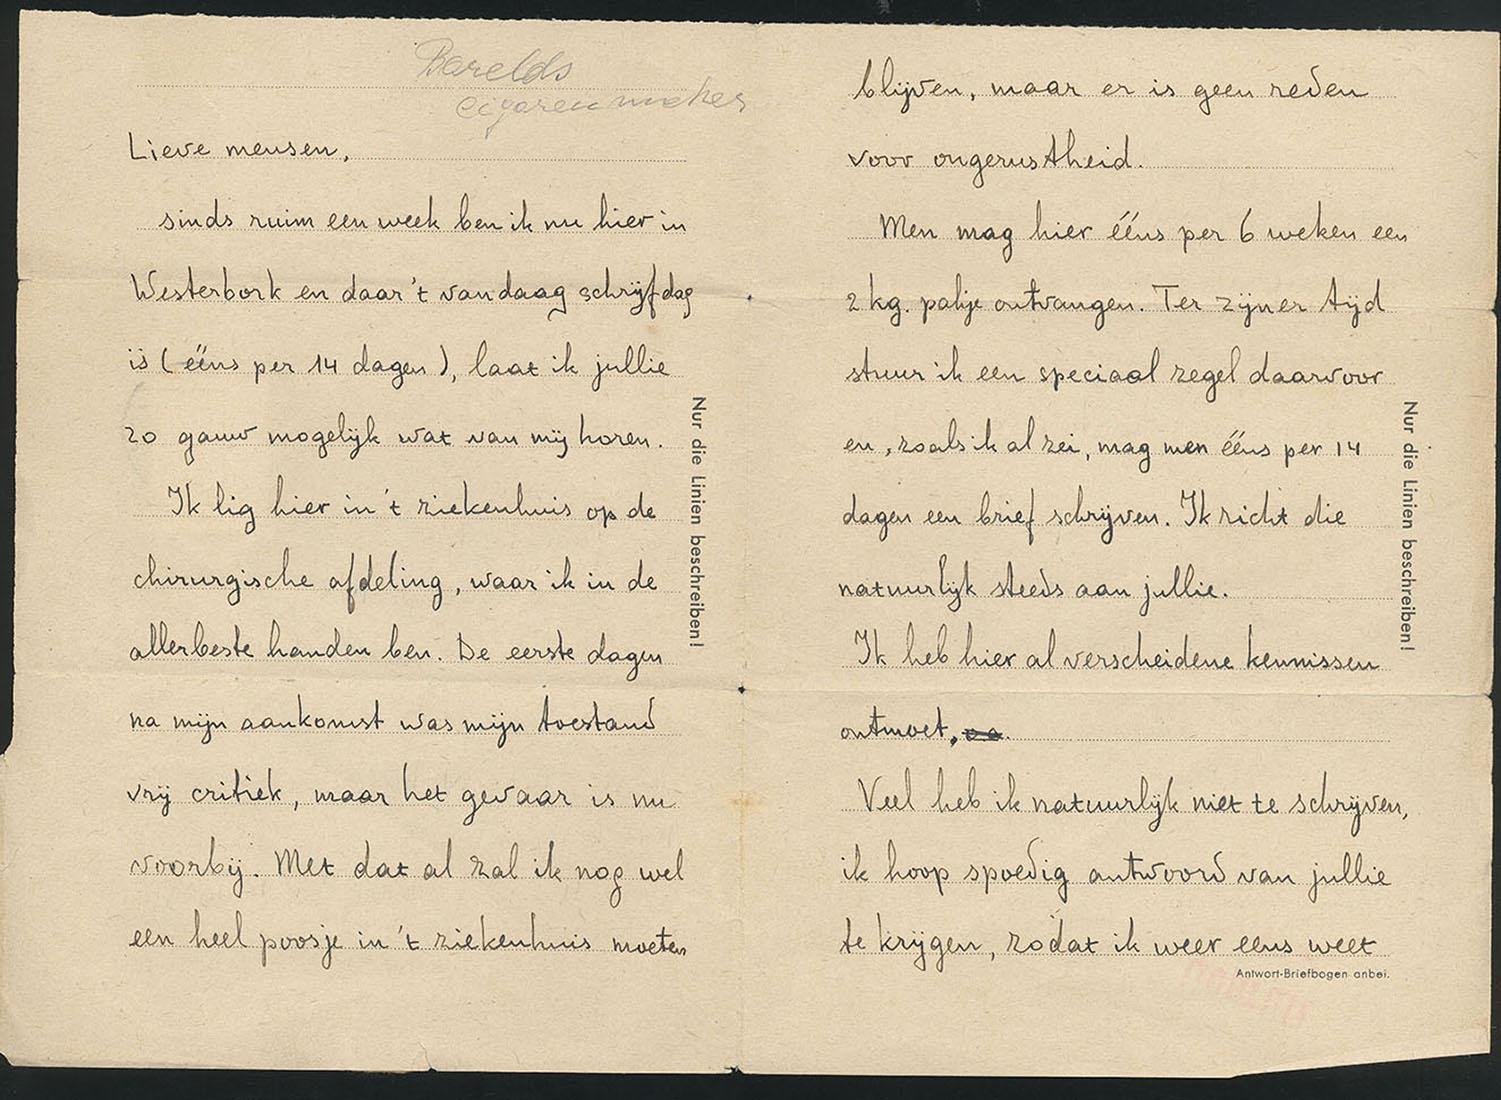 Barelds
cigarenmaker
Lieve mensen,
sinds ruim een week ben ik nu hier in
Westerbork en daar 't vandaag schrijfdag
is (ééns per 14 dagen), laat ik jullie
zo gauw mogelijk wat van mij horen.
Ik lig hier in 't ziekenhuis op de
chirurgische afdeling, waar ik in de
allerbeste handen ben. De eerste dagen
na mijn aankomst was mijn toestand
vrij critiek, maar het gevaar is nu
voorbij. Met dat al zal ik nog wel
een heel poosje in 't ziekenhuis moeten
Nur die Linien beschreiben!
blijven, maar er is geen reden
voor ongerustheid.
Men mag hier ééns per 6 weken een
2 kg. pakje ontvangen. Ter zijner tijd
stuur ik een speciaal zegel daarvoor
en, zoals ik al zei, mag men ééns per 14
dagen een brief schrijven. Ik richt die
natuurlijk steeds aan jullie.
Ik heb hier al verscheidene kennissen
ontmoet,
Veel heb ik natuurlijk niet te schrijven,
ik hoop spoedig antwoord van jullie
te krijgen, zodat ik weer eens weet
Antwort-Briefbogen anbei.
Nur die Linien beschreiben!